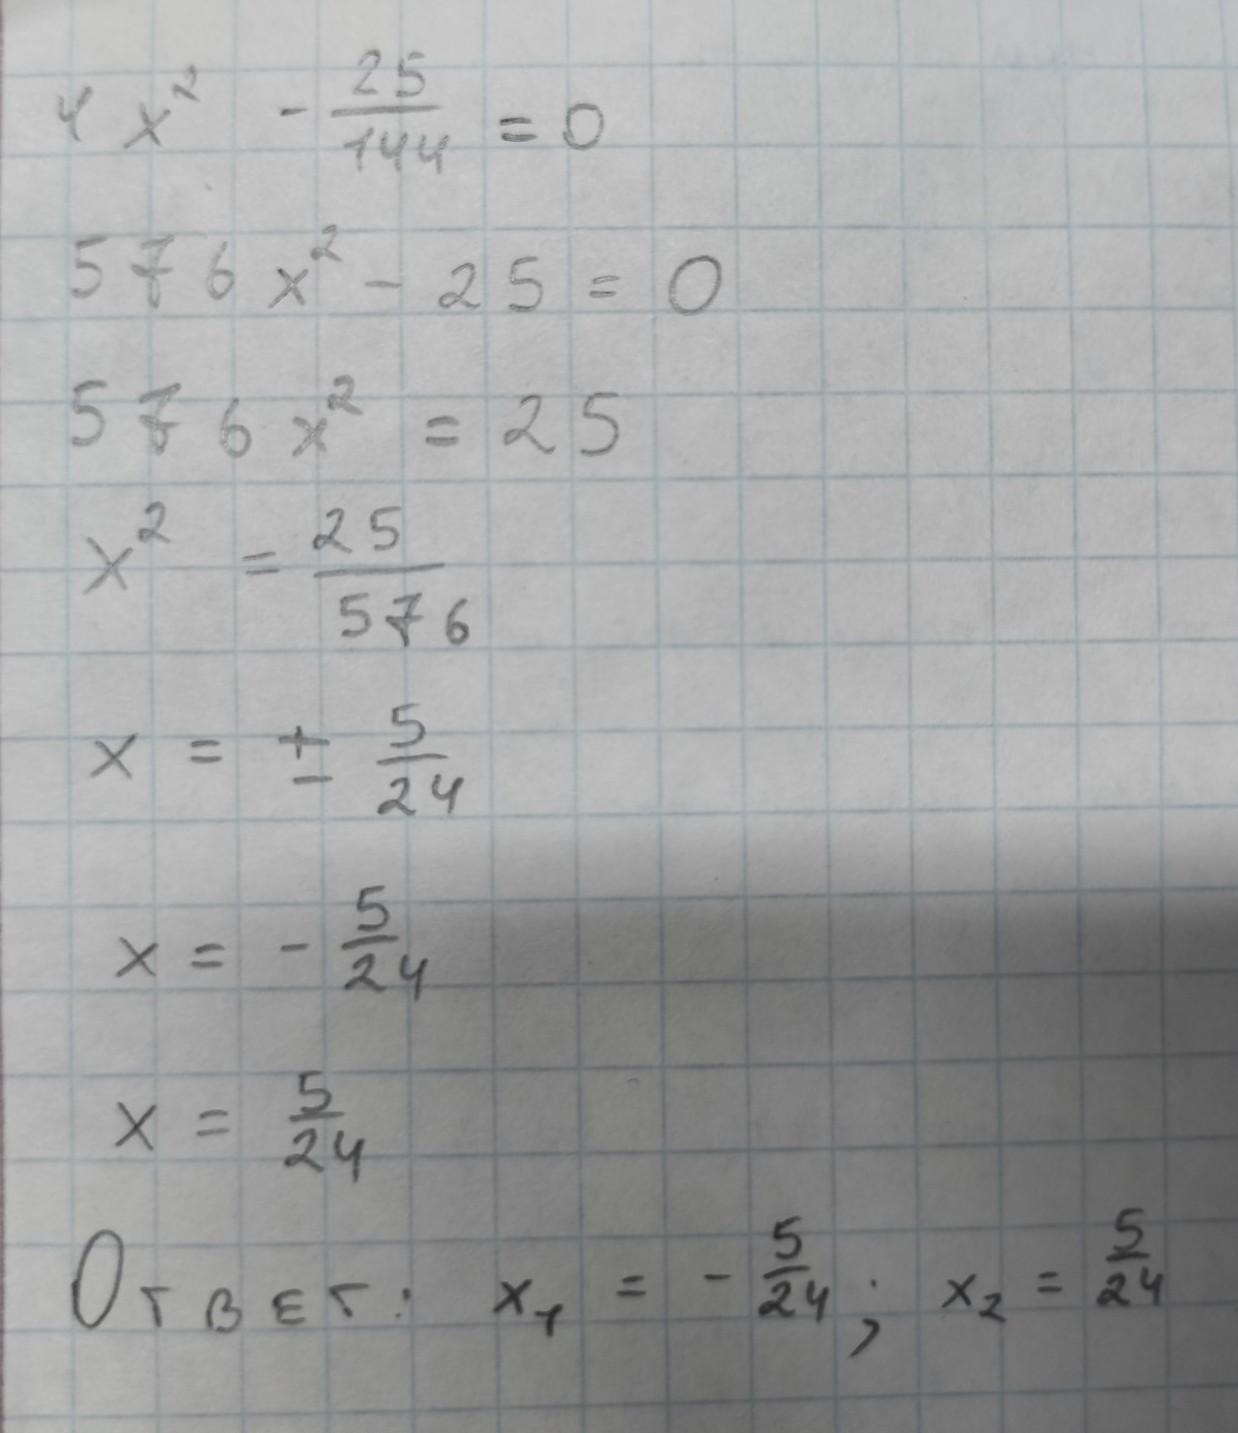 4x² - 25/144 = 0
576x² - 25 = 0
576x² = 25
x² = 25/576
x = ± 5/24
x = - 5/24
x = 5/24
Ответ: x₁ = - 5/24; x₂ = 5/24